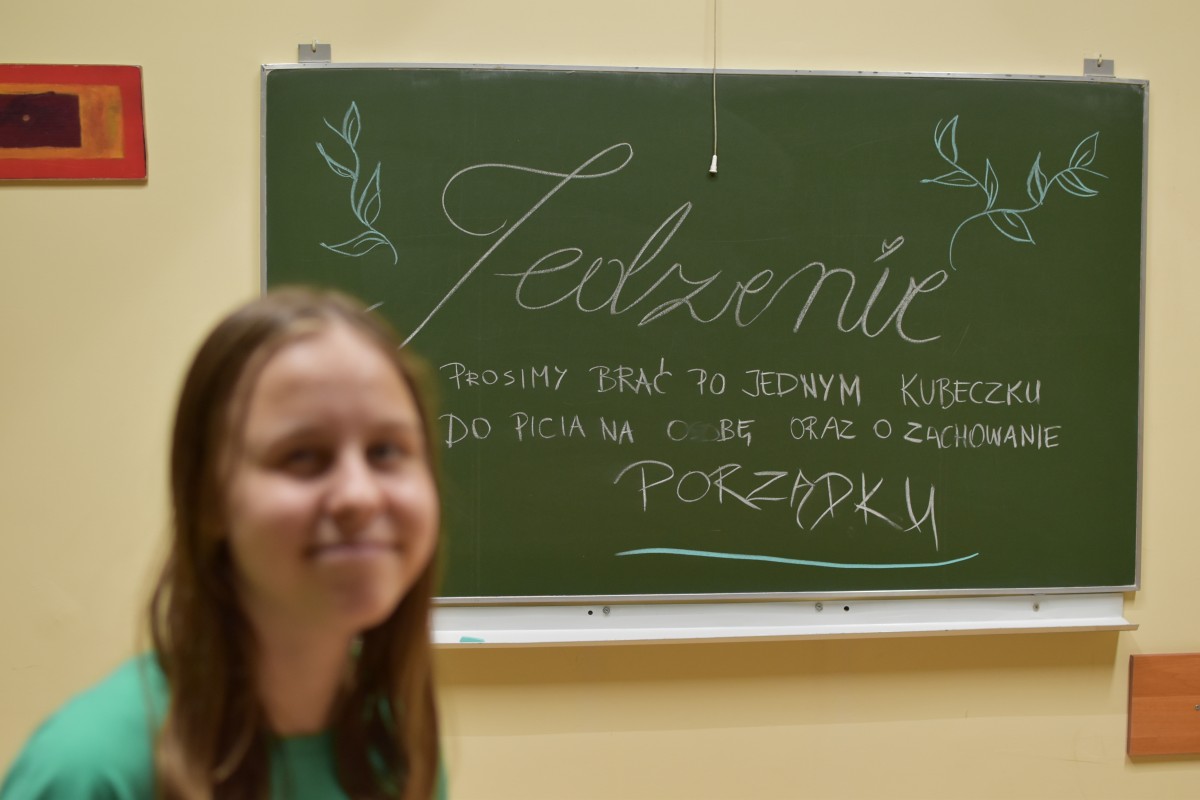 Jedzenie
PROSIMY BRAĆ PO JEDNYM KUBECZKU
DO PICIA NA OSOBĘ ORAZ O ZACHOWANIE
PORZĄDKU